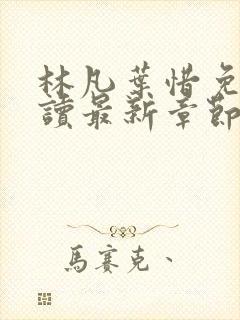 林凡葉惜免
讀最新章節
馬賽克、